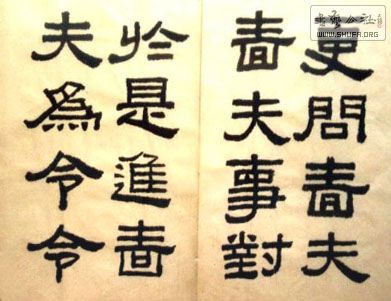 更問嗇夫
嗇夫事對
於是進嗇
夫為令令
書藝公社
WWW.SHUFA.ORG